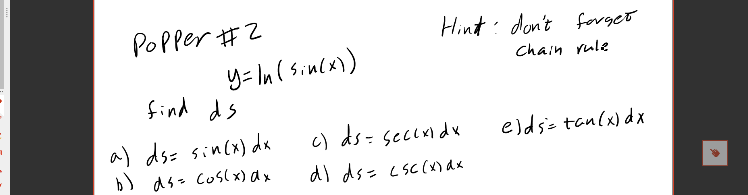 Popper #2
Hint: don't forget
chain rule
y=ln(sin(x))
find ds
a) ds= sin(x) dx
b) ds= cos(x) dx
c) ds= sec(x) dx
d) ds= csc(x) dx
e) ds= tan(x) dx